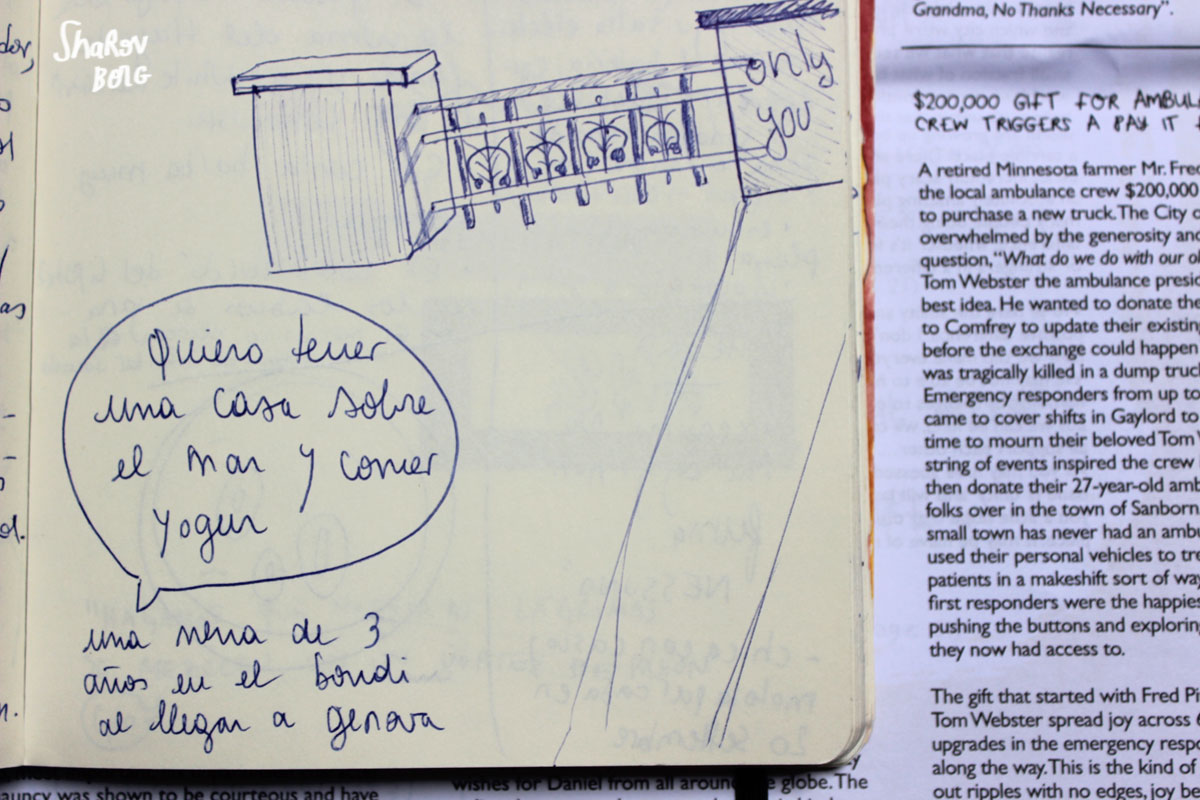 Sharov
BERG
only
you
Quiero tener
una casa sobre
el mar y comer
yogur
una nena de 3
años en el bondi
al llegar a genova
Grandma, No Thanks Necessary".
$200,000 GIFT FOR AMBUL
CREW TRIGGERS A PAY IT
A retired Minnesota farmer Mr. Fred
the local ambulance crew $200,000
to purchase a new truck. The City o
overwhelmed by the generosity and
question, "What do we do with our ol
Tom Webster the ambulance presid
best idea. He wanted to donate the
to Comfrey to update their existing
before the exchange could happen
was tragically killed in a dump truck
Emergency responders from up to
came to cover shifts in Gaylord to
time to mourn their beloved Tom W
string of events inspired the crew
then donate their 27-year-old amb
folks over in the town of Sanborn.
small town has never had an ambu
used their personal vehicles to tre
patients in a makeshift sort of way
first responders were the happies
pushing the buttons and exploring
they now had access to.
The gift that started with Fred Pi
Tom Webster spread joy across 6
upgrades in the emergency respo
along the way. This is the kind of
out ripples with no edges, joy be
wishes for Daniel from all around the globe. The
auncy was shown to be courteous and have